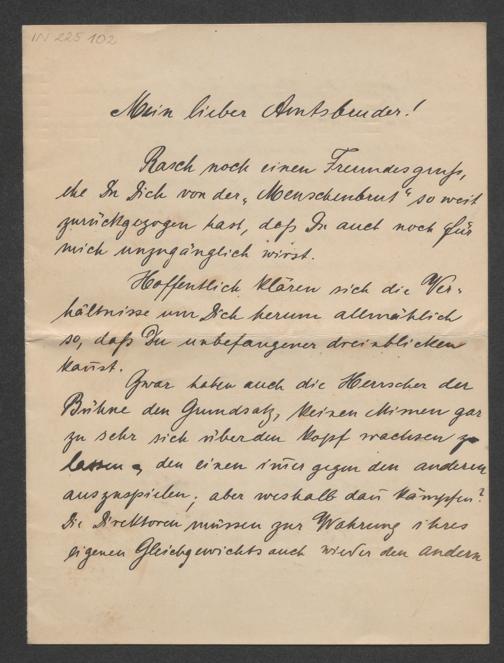 IN 225 102
Mein lieber Amtsbruder!
Rasch noch einen Freundesgruß,
ehe Du Dich von der „Menschenbrut“ so weit
zurückgezogen hast, daß Du auch noch für
mich unzugänglich wirst.
Hoffentlich klären sich die Ver-
hältnisse um Dich herum allmählich
so, daß Du unbefangener dreinblicken
kannst.
Zwar haben auch die Herrscher der
Bühne den Grundsatz, keinen Mimen gar
zu sehr sich über den Kopf wachsen zu
lassen, den einen im̄er gegen den anderen
auszuspielen; aber weshalb dan̄ kämpfen?
Die Direktoren müssen zur Wahrung ihres
eigenen Gleichgewichts auch wieder den andern